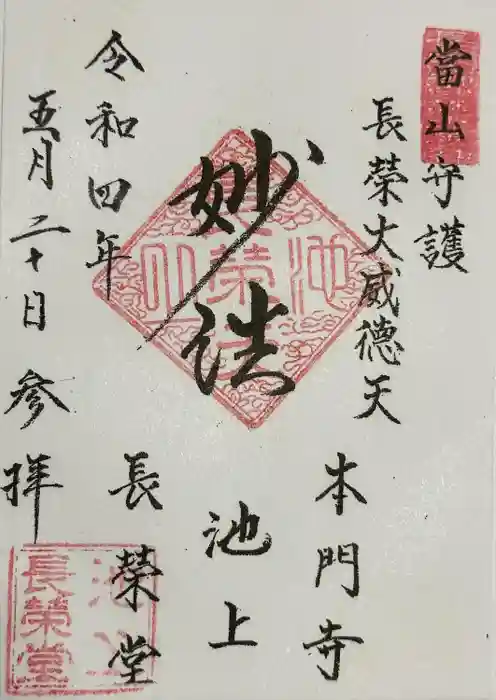 當山守護
長榮大威德天
本門寺
池上
妙法
長榮堂
令和四年
五月二十日 参拝
池上
長榮堂